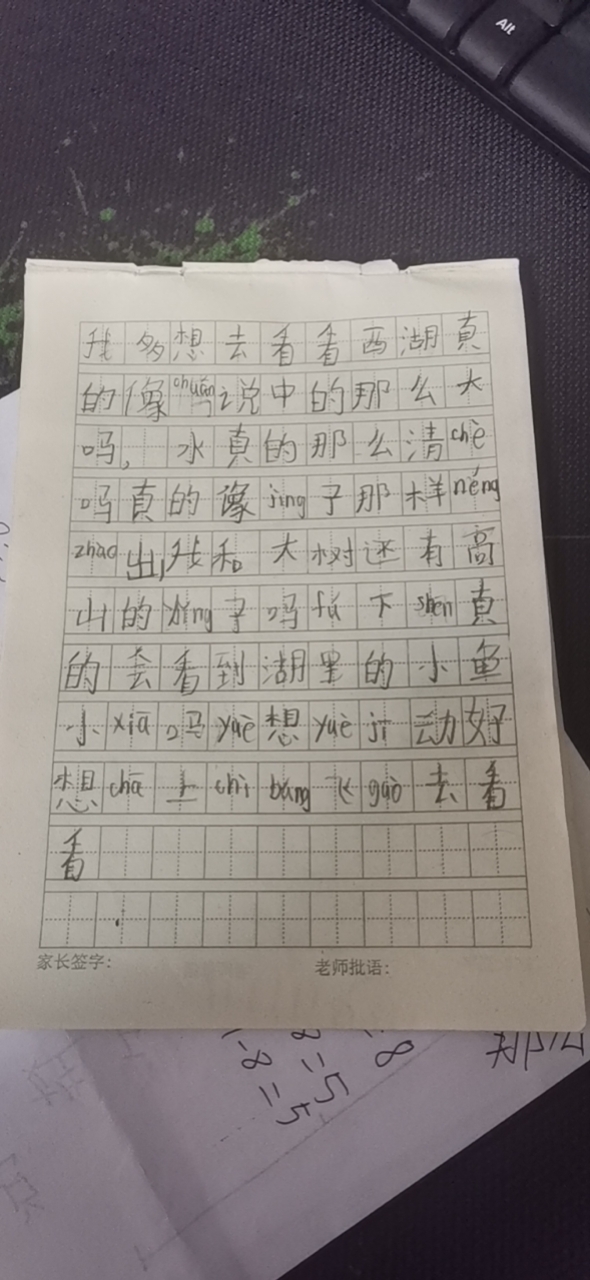 Alt
我多想去看看西湖真
的像chuán说中的那么大
吗，水真的那么清chè
吗真的像jìng子那样néng
zhào出我和大树还有高
山的yǐng子吗fú下shēn真
的会看到湖里的小鱼
小xiā吗yuè想yuè jī动好
想chā上chì bǎng飞gāo去看
看
家长签字：
老师批语：
-8=5
8=5
8
那么